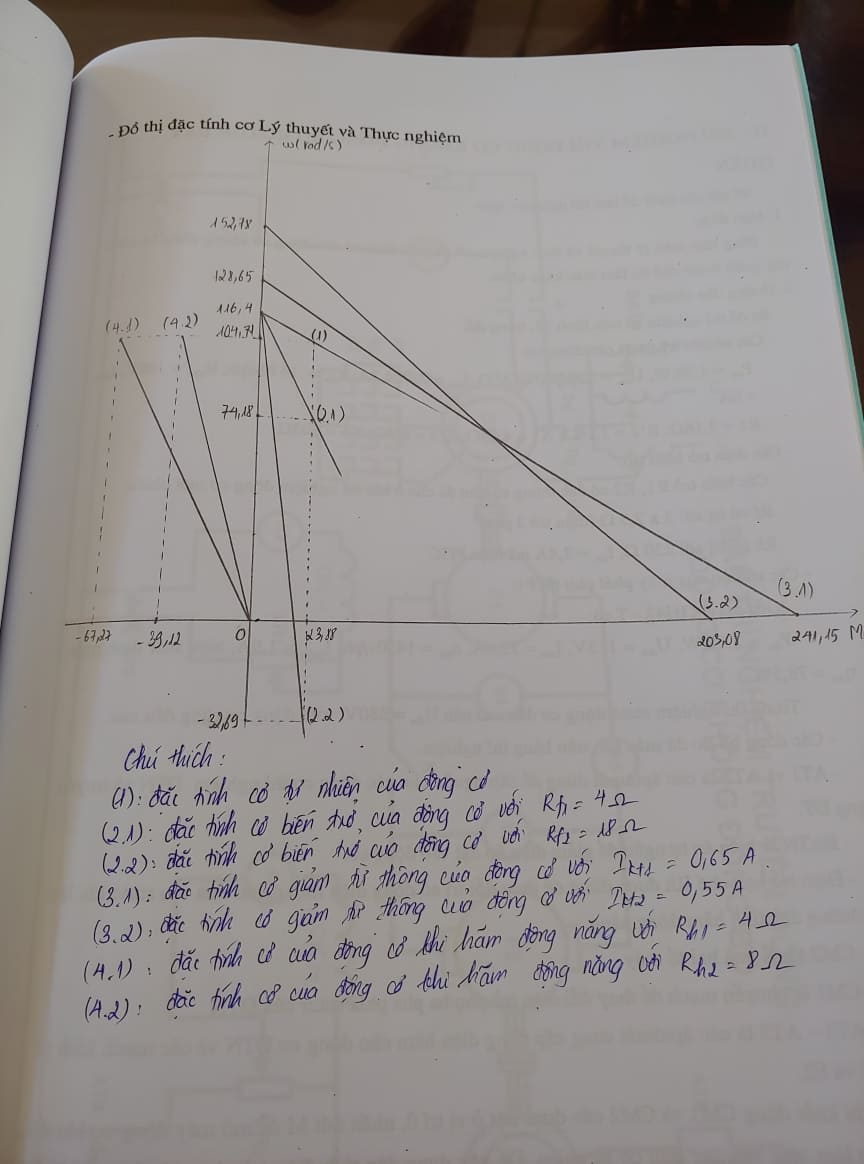 - Đồ thị đặc tính cơ Lý thuyết và Thực nghiệm
ω(rad/s)
152,78
128,65
116,4
(4.1) (4.2)
104,71
(1)
74,18
(2.1)
(3.2)
(3.1)
-67,27
-39,12
O
23,88
203,08
241,15 M
-32,69
(2.2)
Chú thích:
(1): đặc tính cơ tự nhiên của động cơ
(2.1): đặc tính cơ biến trở của động cơ với Rf1 = 4Ω
(2.2): đặc tính cơ biến trở của động cơ với Rf2 = 18Ω
(3.1): đặc tính cơ giảm từ thông của động cơ với Ikt1 = 0,65 A.
(3.2): đặc tính cơ giảm từ thông của động cơ với Ikt2 = 0,55 A
(4.1): đặc tính cơ của động cơ khi hãm động năng với Rh1 = 4Ω
(4.2): đặc tính cơ của động cơ khi hãm động năng với Rh2 = 8Ω